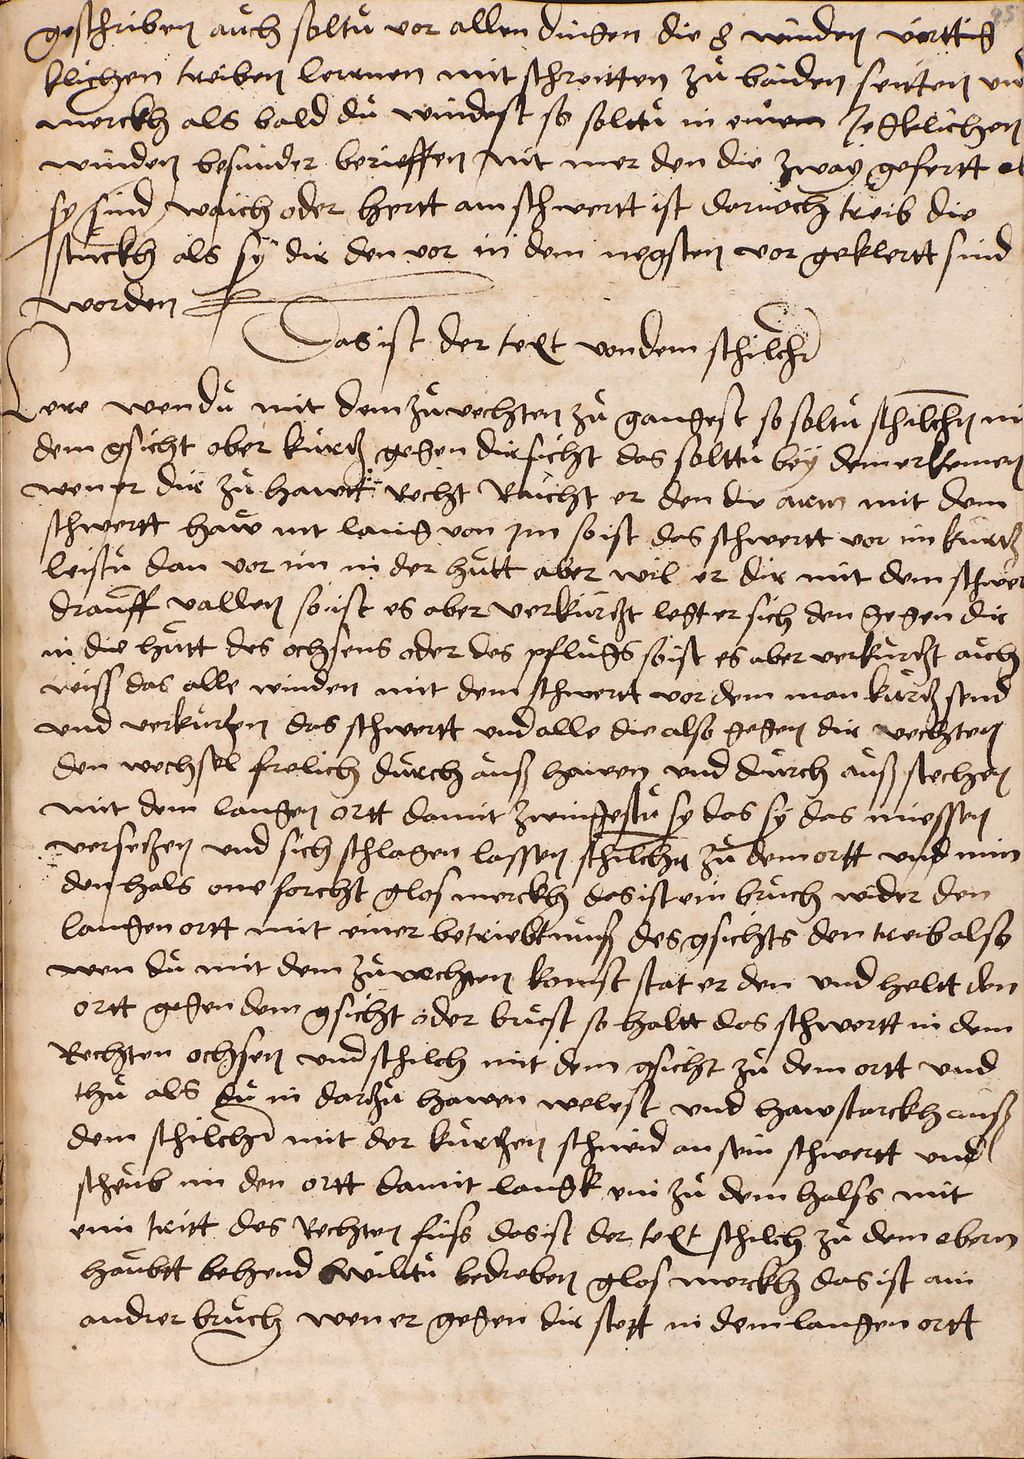 geschriben auch soltu vor allen dingen die 8 winden vörttig
klichen treiben lernnen mit schreitten zu baiden seitten und
merckh als bald du windest so solttu in einem Jegklichen
winden besunder brieffen nit mer den die zway gefertt ob
sy sind waich oder hertt am schwertt ist darnoch treib die
stuckh als sy dir den vor in dem negsten vor geklertt sind
worden
Das ist der text von dem schilcher
Lere wen du mit dem zuvechten zu gangest so soltu schilchen mit
dem gsicht ober kurtz gegen dir ficht das solttu bey dem erkennen
wen er dir zu hawtt Recht Raicht er den die arm mit dem
schwertt haw nit lang von im so ist das schwertt vor im kurtz
leistu dan vor im in der hutt aber wil er dir mit dem schwert
drauff vallen so ist es aber verkurtzt legt er sich den gegen dir
in die hutt des ochsens oder des pflugs so ist es aber verkurtzt auch
wiss das alle winden mit dem schwertt vor dem man kurtz send
und verkurtzen das schwertt und alle die also gegen dir vechten
den wechsel frelich durch auss hawen und durch auss stechen
mit dem langen ortt damit zwingestu sy das sy das miessen
versetzen und sich schlagen lassen schilchen zu dem ortt und nim
den hals one forcht glos merckh das ist ein bruch wider den
langen ortt mit einer betriebtnuss des gsichts den treib also
wen du mit dem zuvechten komst stat er den und heltt den
ortt gegen dem gsicht oder brust so haltt das schwertt in dem
Rechten ochsen und schilch mit dem gsicht zu dem ortt und
thu als du in darzu hawen welest und haw starckh auss
dem schilcher mit der kurtzen schneid an sein schwertt und
scheub im den ortt damit langk ein zu dem halss mit
eim tritt des Rechten fuss das ist der text schilch zu dem obern
haubtt behend wilttu bedreben glos merckh das ist ain
andrer bruch wen er gegen dir stett in dem langen ortt